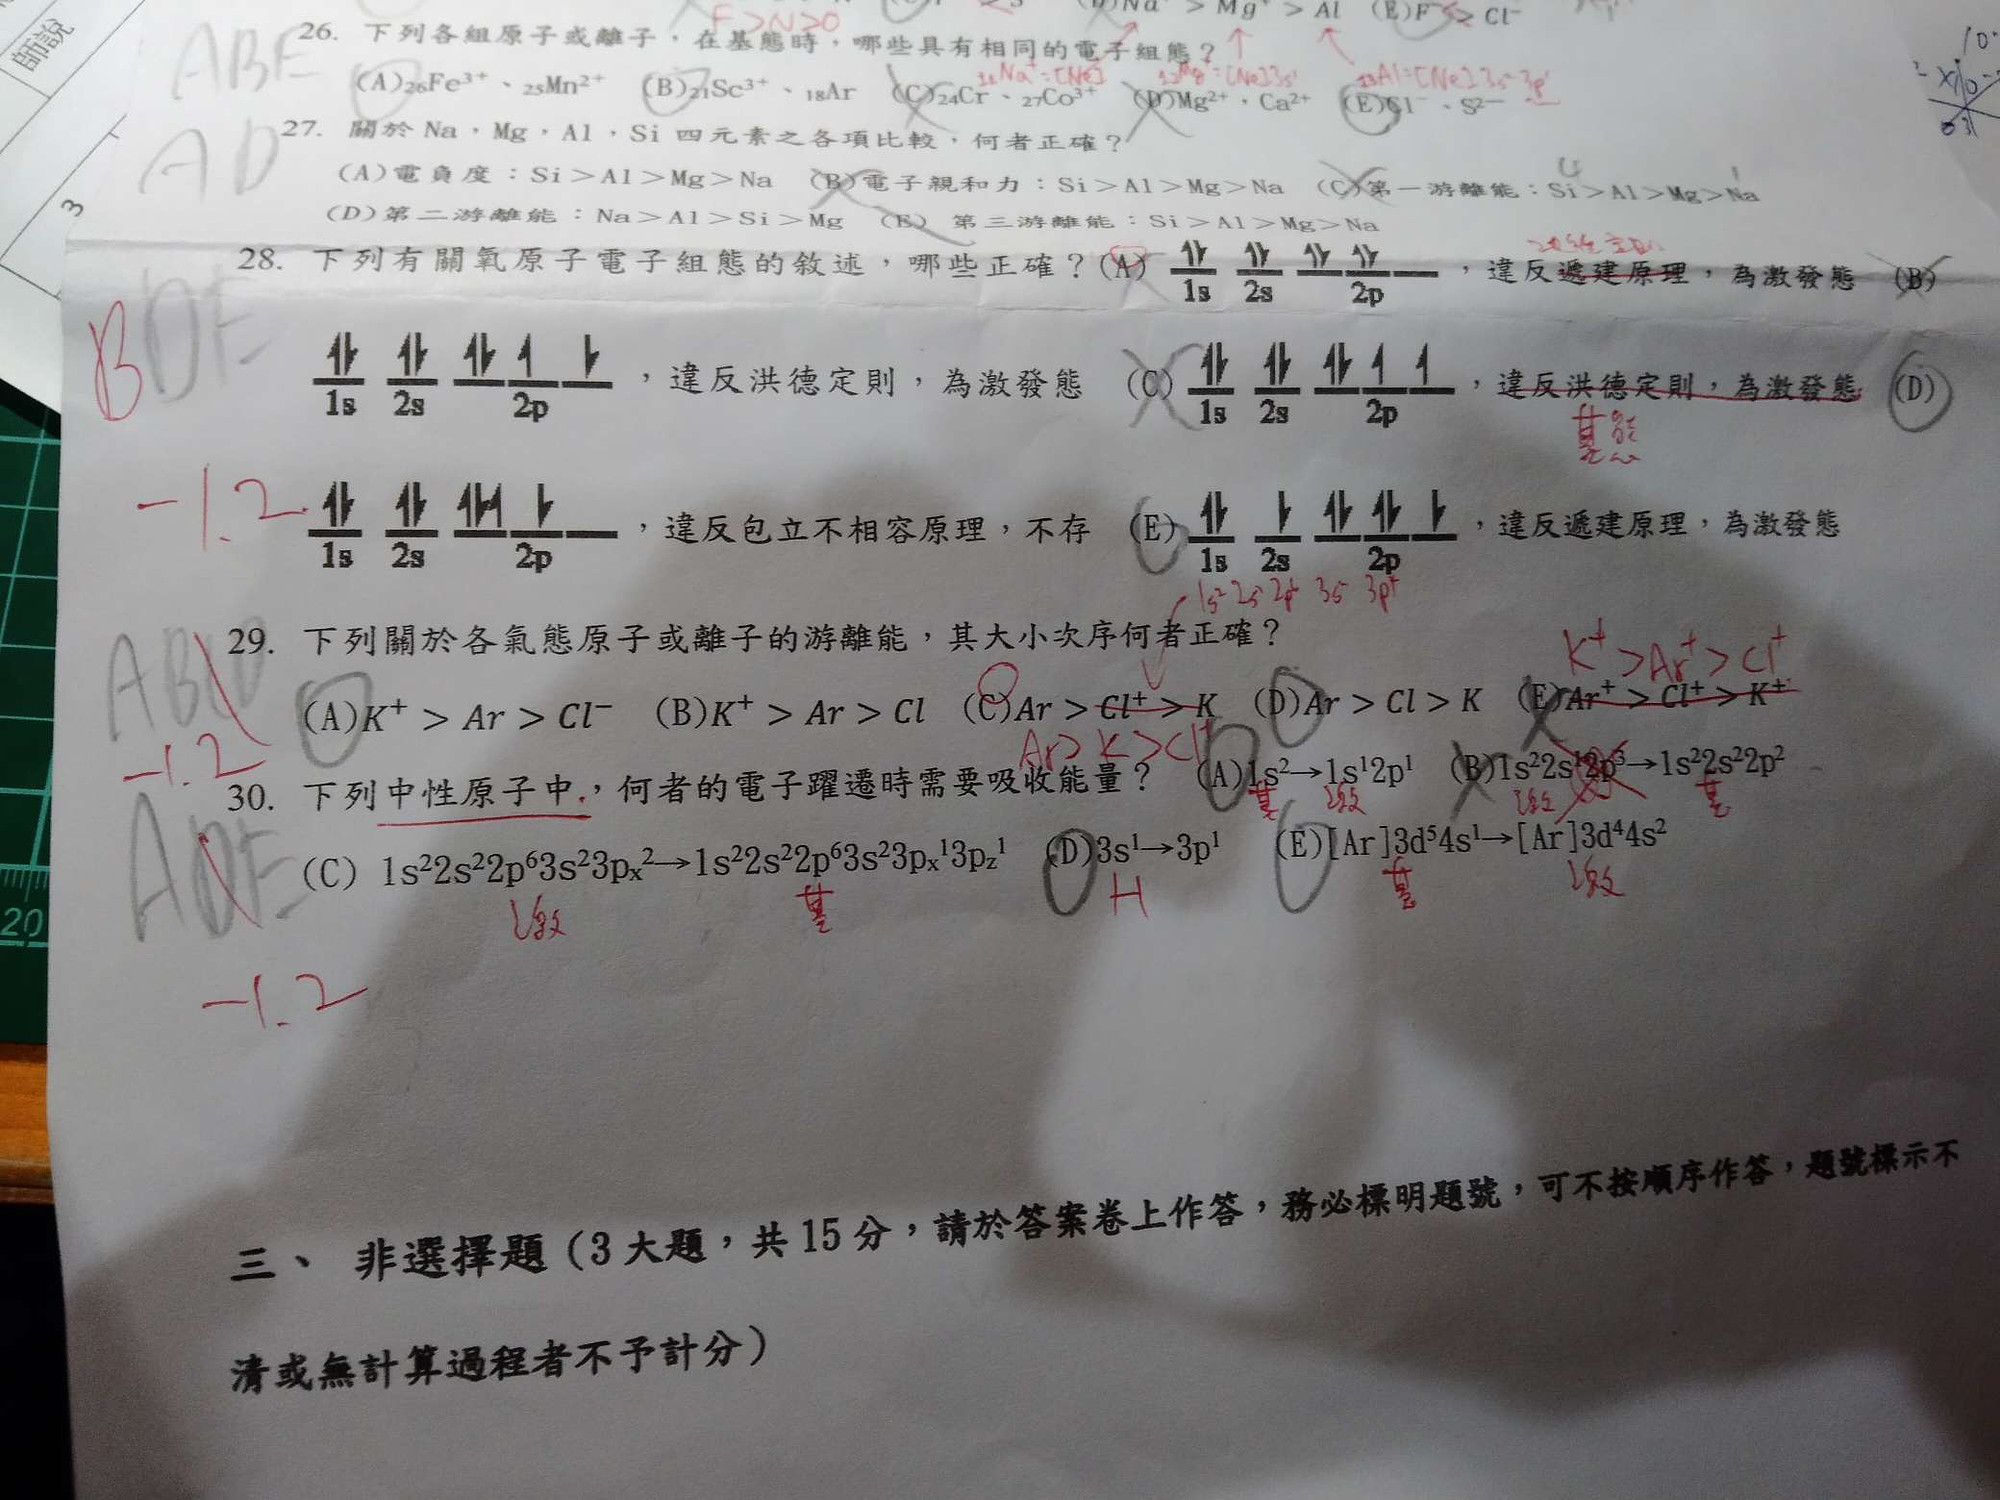 師說
3
F > N > O
(D)Na⁺ > Mg⁺ > Al (E)F⁻ > Cl⁻
ABE
26. 下列各組原子或離子，在基態時，哪些具有相同的電子組態？
₁₁Na⁺=[Ne] ₁₂Mg⁺=[Ne]3s¹ ₁₃Al=[Ne]3s²3p¹
(A)₂₆Fe³⁺、₂₅Mn²⁺ (B)₂₁Sc³⁺、₁₈Ar (C)₂₄Cr、₂₇Co³⁺ (D)Mg²⁺、Ca²⁺ (E)Cl⁻、S²⁻
AD
27. 關於 Na，Mg，Al，Si 四元素之各項比較，何者正確？
(A)電負度：Si>Al>Mg>Na (B)電子親和力：Si>Al>Mg>Na (C)第一游離能：Si>Al>Mg>Na
(D)第二游離能：Na>Al>Si>Mg (E) 第三游離能：Si>Al>Mg>Na
28. 下列有關氧原子電子組態的敘述，哪些正確？(A) 1s 2s 2p ，違反遞建原理，為激發態 (B)
BDE
1s 2s 2p ，違反洪德定則，為激發態 (C) 1s 2s 2p ，違反洪德定則，為激發態 (D)
基態
-1.2
1s 2s 2p ，違反包立不相容原理，不存 (E) 1s 2s 2p ，違反遞建原理，為激發態
29. 下列關於各氣態原子或離子的游離能，其大小次序何者正確？
K⁺ > Ar⁺ > Cl⁺
(A)K⁺ > Ar > Cl⁻ (B)K⁺ > Ar > Cl (C)Ar > Cl⁺ > K (D)Ar > Cl > K (E)Ar⁺ > Cl⁺ > K⁺
-1.2
Ar > K > Cl⁺
30. 下列中性原子中，何者的電子躍遷時需要吸收能量？ (A)1s²→1s¹2p¹ (B)1s²2s¹2p³→1s²2s²2p²
基 激 激 基
ADE
(C) 1s²2s²2p⁶3s²3pₓ²→1s²2s²2p⁶3s²3pₓ¹3p_z¹ (D)3s¹→3p¹ (E)[Ar]3d⁵4s¹→[Ar]3d⁴4s²
激 基 H 基 激
20
-1.2
三、 非選擇題（3 大題，共 15 分，請於答案卷上作答，務必標明題號，可不按順序作答，題號標示不
清或無計算過程者不予計分）